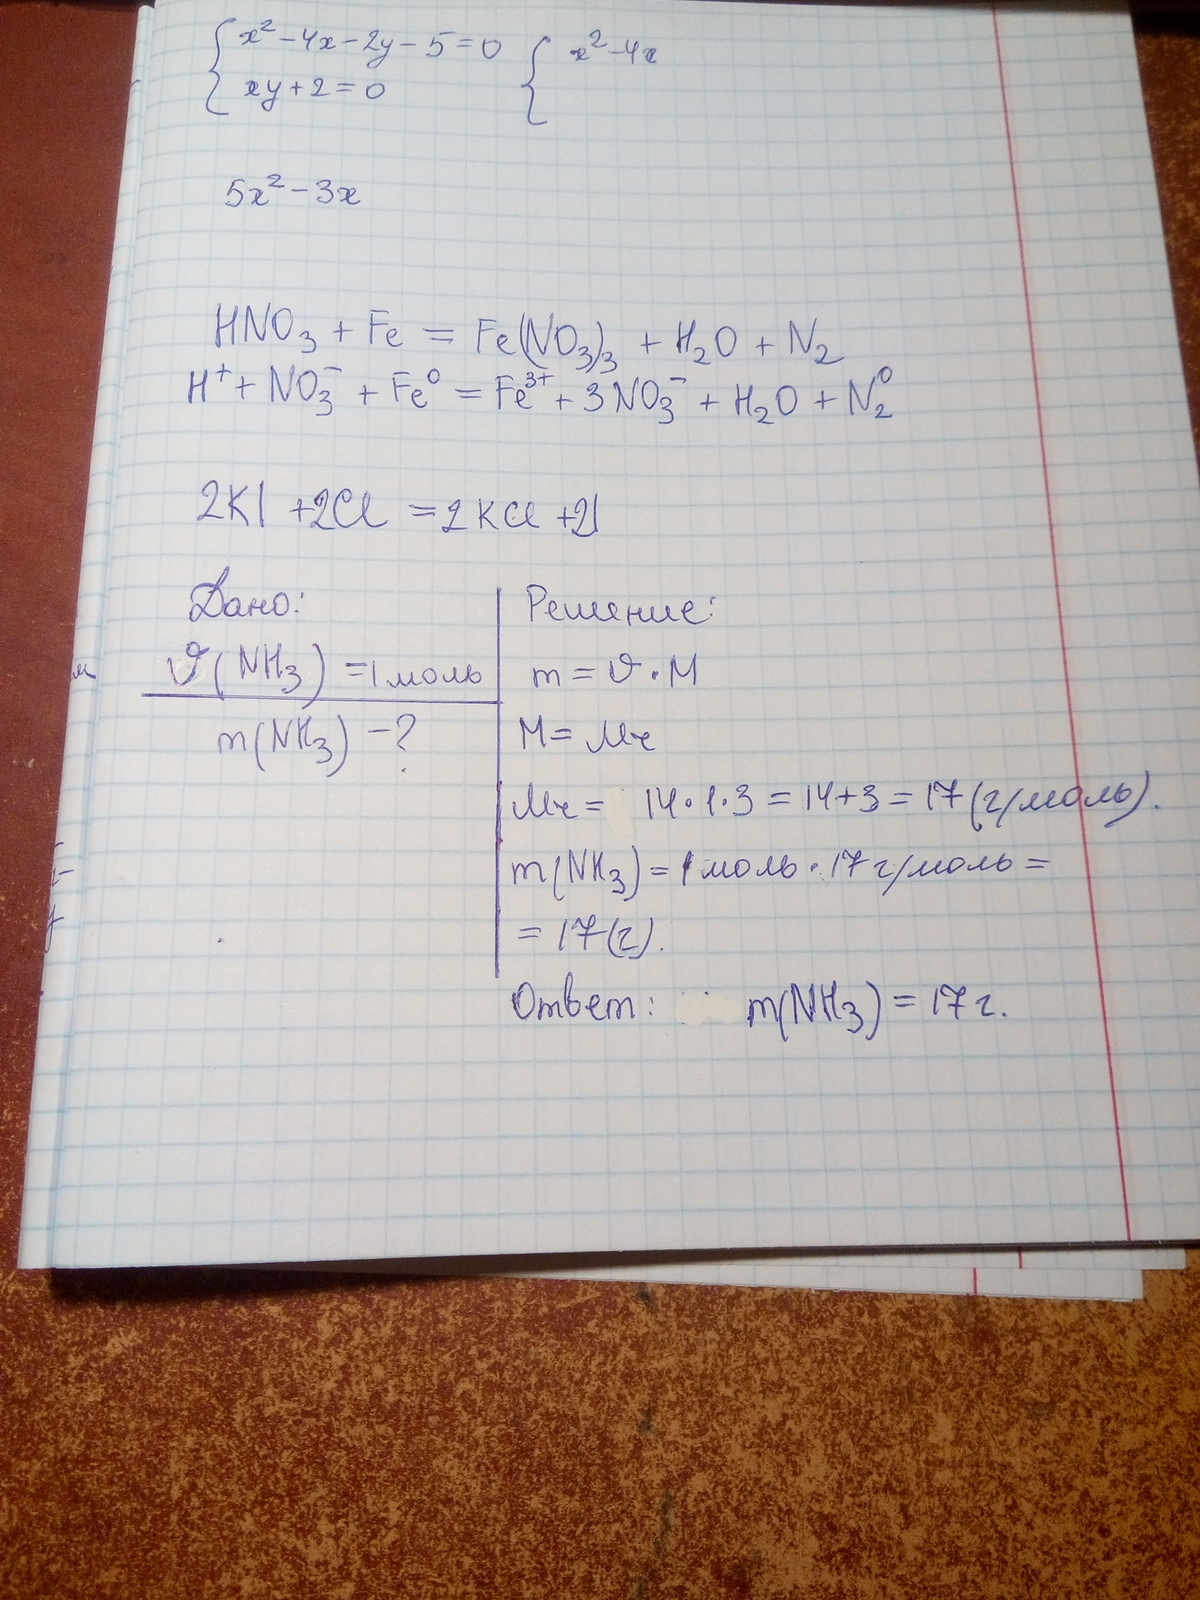 x² - 4x - 2y - 5 = 0 x² - 4x
xy + 2 = 0
5x² - 3x
HNO₃ + Fe = Fe(NO₃)₃ + H₂O + N₂
H⁺ + NO₃⁻ + Fe⁰ = Fe³⁺ + 3NO₃⁻ + H₂O + N₂⁰
2KI + 2Cl = 2KCl + 2I
Дано:
ϑ(NH₃) = 1 моль
m(NH₃) - ?
Решение:
m = ϑ · M
M = Mr
Mr = 14 · 1 · 3 = 14 + 3 = 17 (г/моль).
m(NH₃) = 1 моль · 17 г/моль =
= 17 (г).
Ответ: m(NH₃) = 17 г.